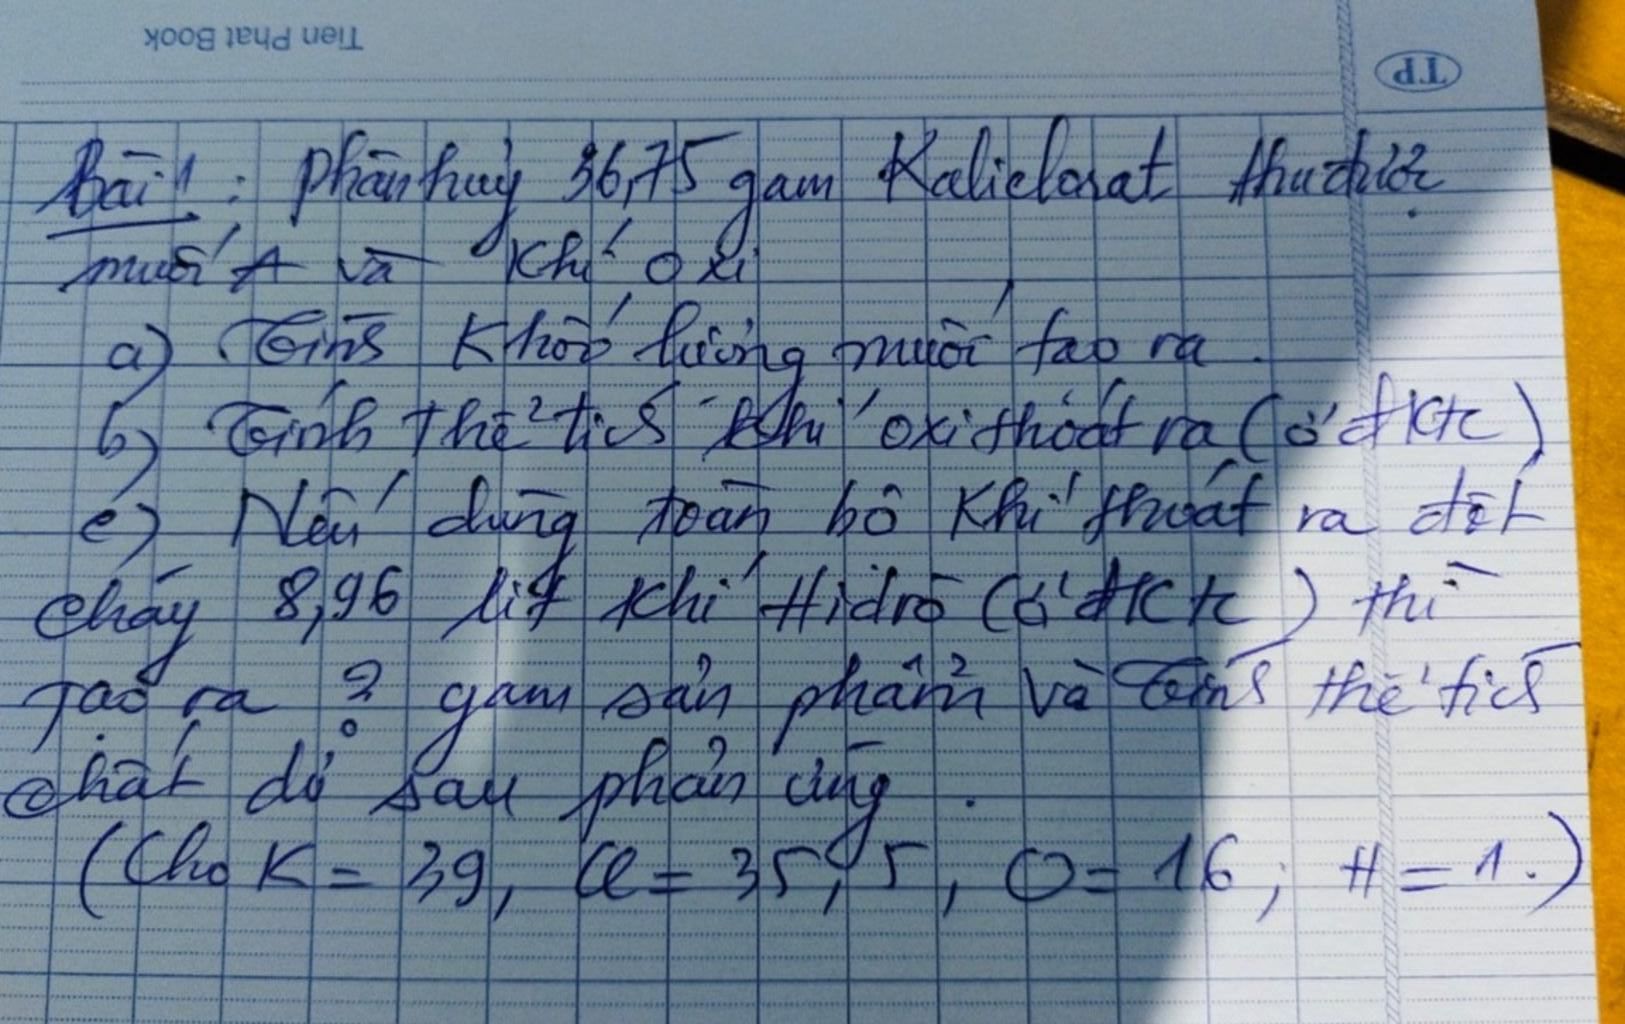 Tien Phat Book
TP
Bài 1 : phân huỷ 36,75 gam Kaliclorat thu được
muối A và khí oxi
a) Tính khối lượng muối tạo ra .
b) Tính thể tích khí oxi thoát ra (ở đktc)
c) Nếu dùng toàn bộ khí thoát ra đốt
cháy 8,96 lít khí Hidrô (ở đktc) thì
Tạo ra ? gam sản phẩm và Tính thể tích
chất dư sau phản ứng .
(Cho K = 39, Cl = 35,5, O = 16 ; H = 1.)